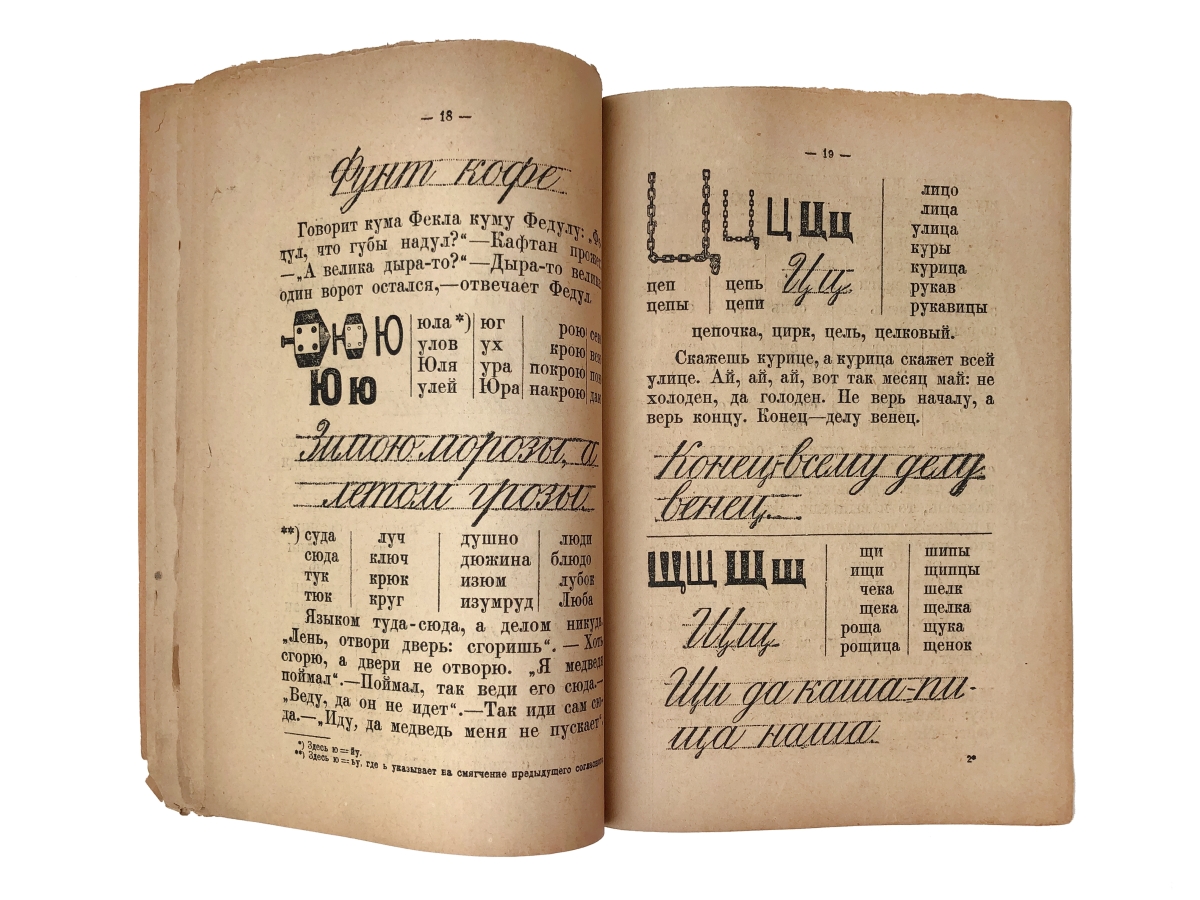 — 18 —
Фунт кофе
Говорит кума Фекла куму Федулу: „Фе-
дул, что губы надул?“—Кафтан
—„А велика дыра-то?“—Дыра-то велика
один ворот остался,—отвечает Федул.
Ю ю Ю
Ю ю
юла *) юг рою
улов ух крою
Юля ура покрою
улей Юра накрою
Зимою морозы, а
летом грозы.
**) суда луч душно люди
сюда ключ дюжина блюдо
тук крюк изюм лубок
тюк круг изумруд Люба
Языком туда-сюда, а делом никуда.
„Лень, отвори дверь: сгоришь“.—Хоть
сгорю, а двери не отворю. „Я медведя
поймал“.—Поймал, так веди его сюда.—
„Веду, да он не идет“.—Так иди сам сю-
да.—„Иду, да медведь меня не пускает“.
*) Здесь ю=йу.
**) Здесь ю=ьу, где ь указывает на смягчение предыдущего
— 19 —
Ц ц Ц Ц ц
Ц ц
цеп цепь
цепы цепи
лицо
лица
улица
куры
курица
рукав
рукавицы
цепочка, цирк, цель, целковый.
Скажешь курице, а курица скажет всей
улице. Ай, ай, ай, вот так месяц май: не
холоден, да голоден. Не верь началу, а
верь концу. Конец—делу венец.
Конец-всему делу
венец.
Щ Щ Щ щ
Щ щ
щи шипы
ищи щипцы
чека шелк
щека щелка
роща щука
рощица щенок
Щи да каша-пи-
ща наша.
2*